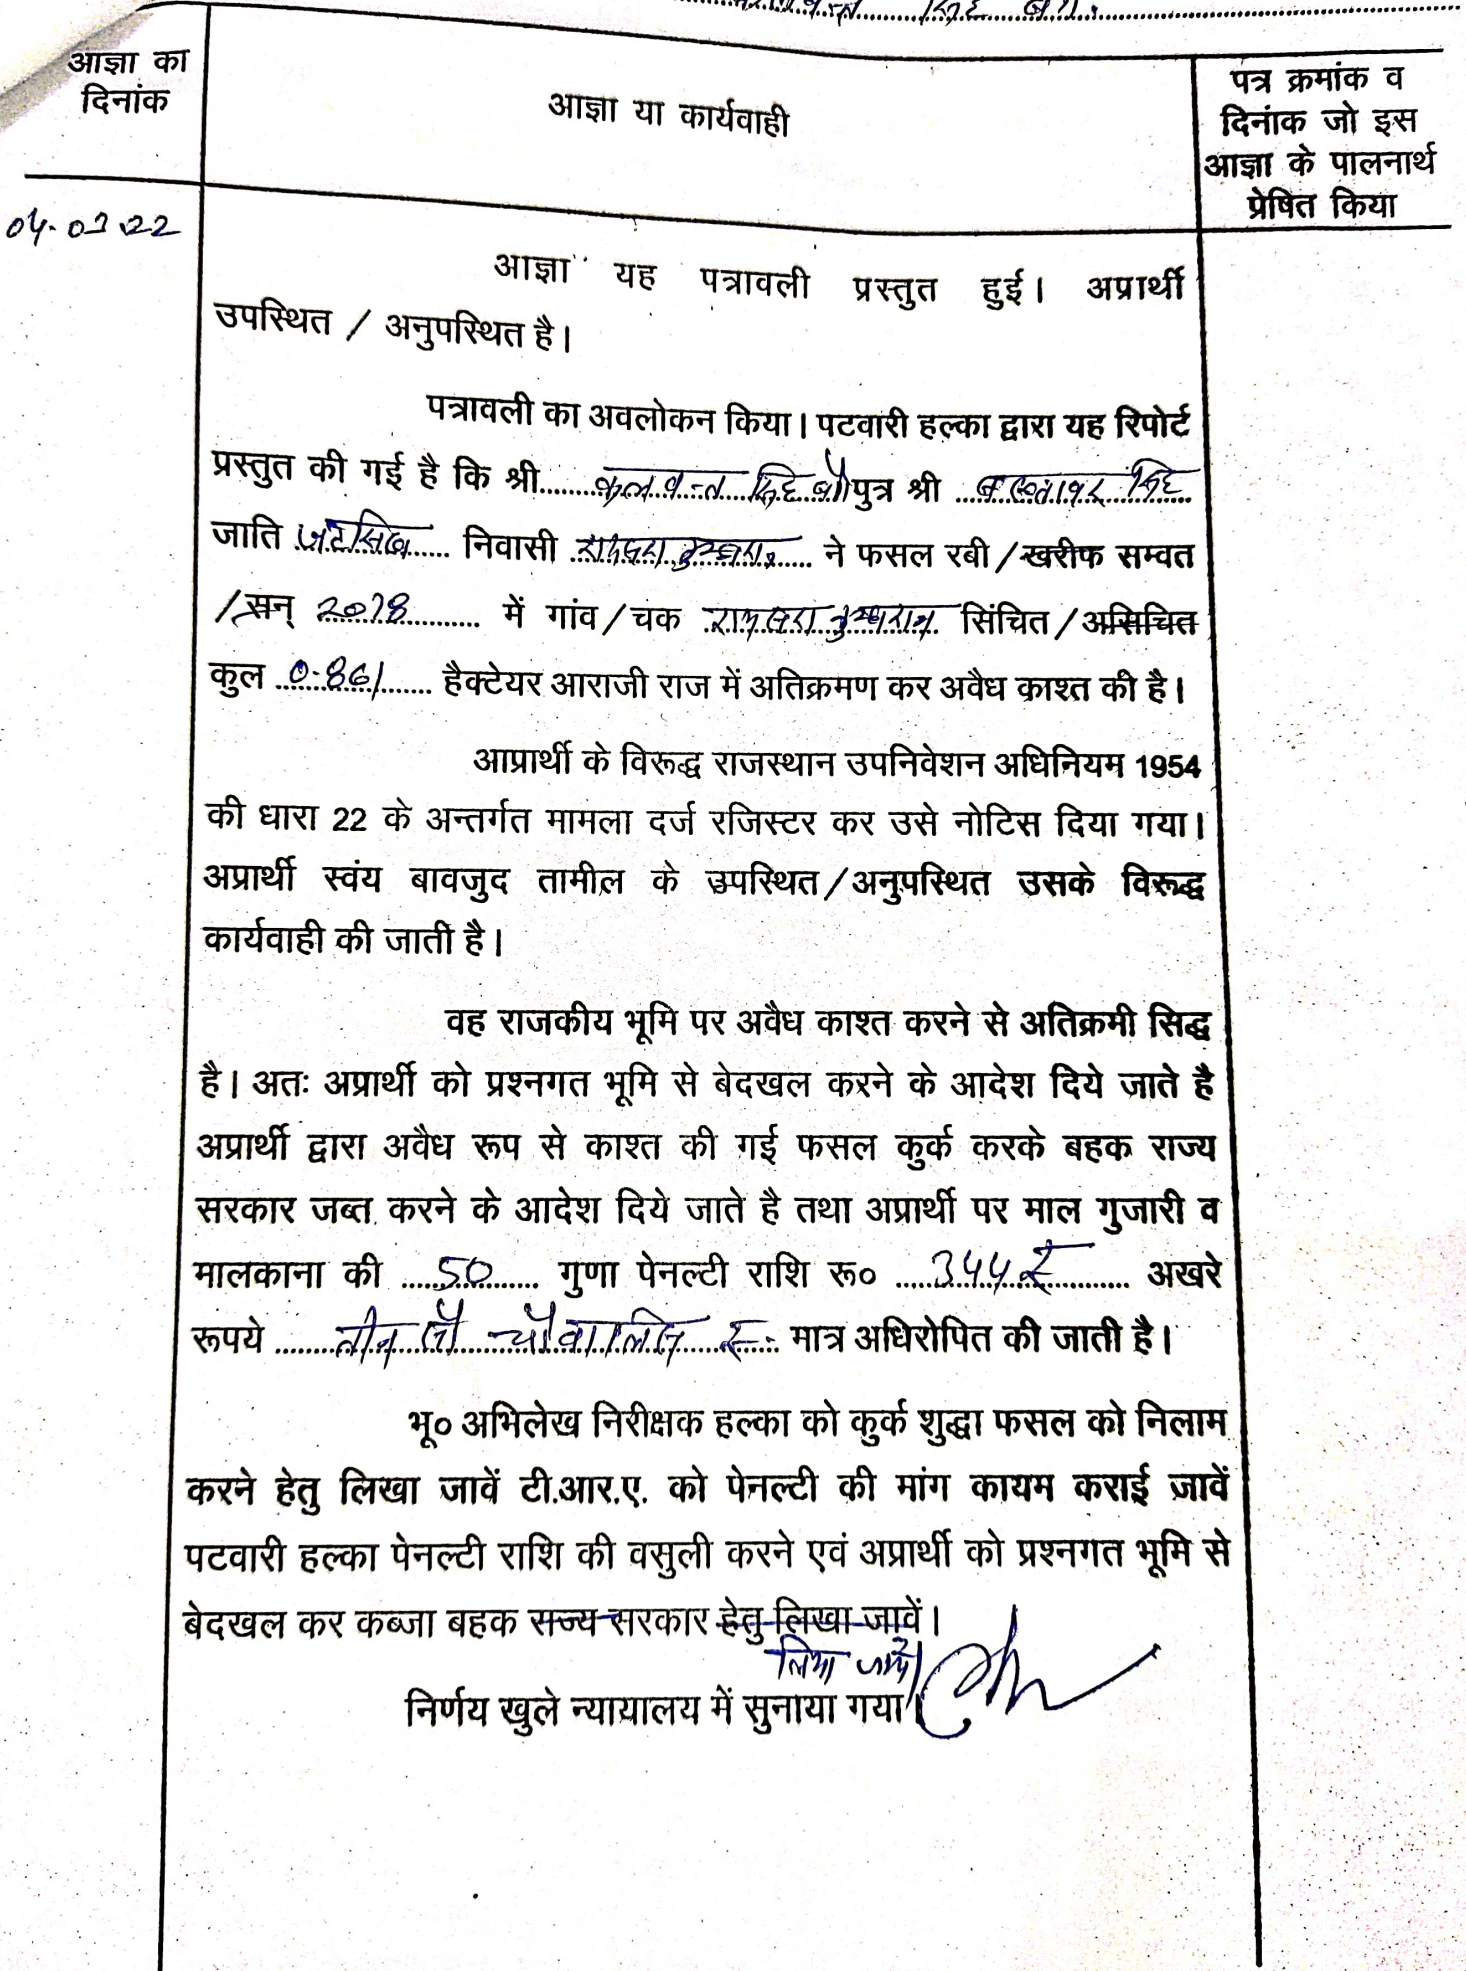 सिंह
आज्ञा का
दिनांक
आज्ञा या कार्यवाही
पत्र क्रमांक व
दिनांक जो इस
आज्ञा के पालनार्थ
प्रेषित किया
आज्ञा यह पत्रावली प्रस्तुत हुई। अप्रार्थी
उपस्थित / अनुपस्थित है।
पत्रावली का अवलोकन किया। पटवारी हल्का द्वारा यह रिपोर्ट
प्रस्तुत की गई है कि श्री कलवन्त सिंह पुत्र श्री सिंह
जाति जटसिख निवासी ने फसल रबी / खरीफ सम्वत
/ सन् 2078 में गांव / चक सिंचित / असिचित
कुल 0.861 हैक्टेयर आराजी राज में अतिक्रमण कर अवैध काश्त की है।
आप्रार्थी के विरूद्ध राजस्थान उपनिवेशन अधिनियम 1954
की धारा 22 के अन्तर्गत मामला दर्ज रजिस्टर कर उसे नोटिस दिया गया।
अप्रार्थी स्वंय बावजुद तामील के उपस्थित / अनुपस्थित उसके विरूद्ध
कार्यवाही की जाती है।
वह राजकीय भूमि पर अवैध काश्त करने से अतिक्रमी सिद्ध
है। अतः अप्रार्थी को प्रश्नगत भूमि से बेदखल करने के आदेश दिये जाते है
अप्रार्थी द्वारा अवैध रूप से काश्त की गई फसल कुर्क करके बहक राज्य
सरकार जब्त करने के आदेश दिये जाते है तथा अप्रार्थी पर माल गुजारी व
मालकाना की 50 गुणा पेनल्टी राशि रू० 344 रू अखरे
रूपये तीन सौ चौवालिस रू. मात्र अधिरोपित की जाती है।
भू० अभिलेख निरीक्षक हल्का को कुर्क शुद्धा फसल को निलाम
करने हेतु लिखा जावें टी.आर.ए. को पेनल्टी की मांग कायम कराई जावें
पटवारी हल्का पेनल्टी राशि की वसुली करने एवं अप्रार्थी को प्रश्नगत भूमि से
बेदखल कर कब्जा बहक राज्य सरकार हेतु लिखा जावें।
लिया जावे
निर्णय खुले न्यायालय में सुनाया गया।